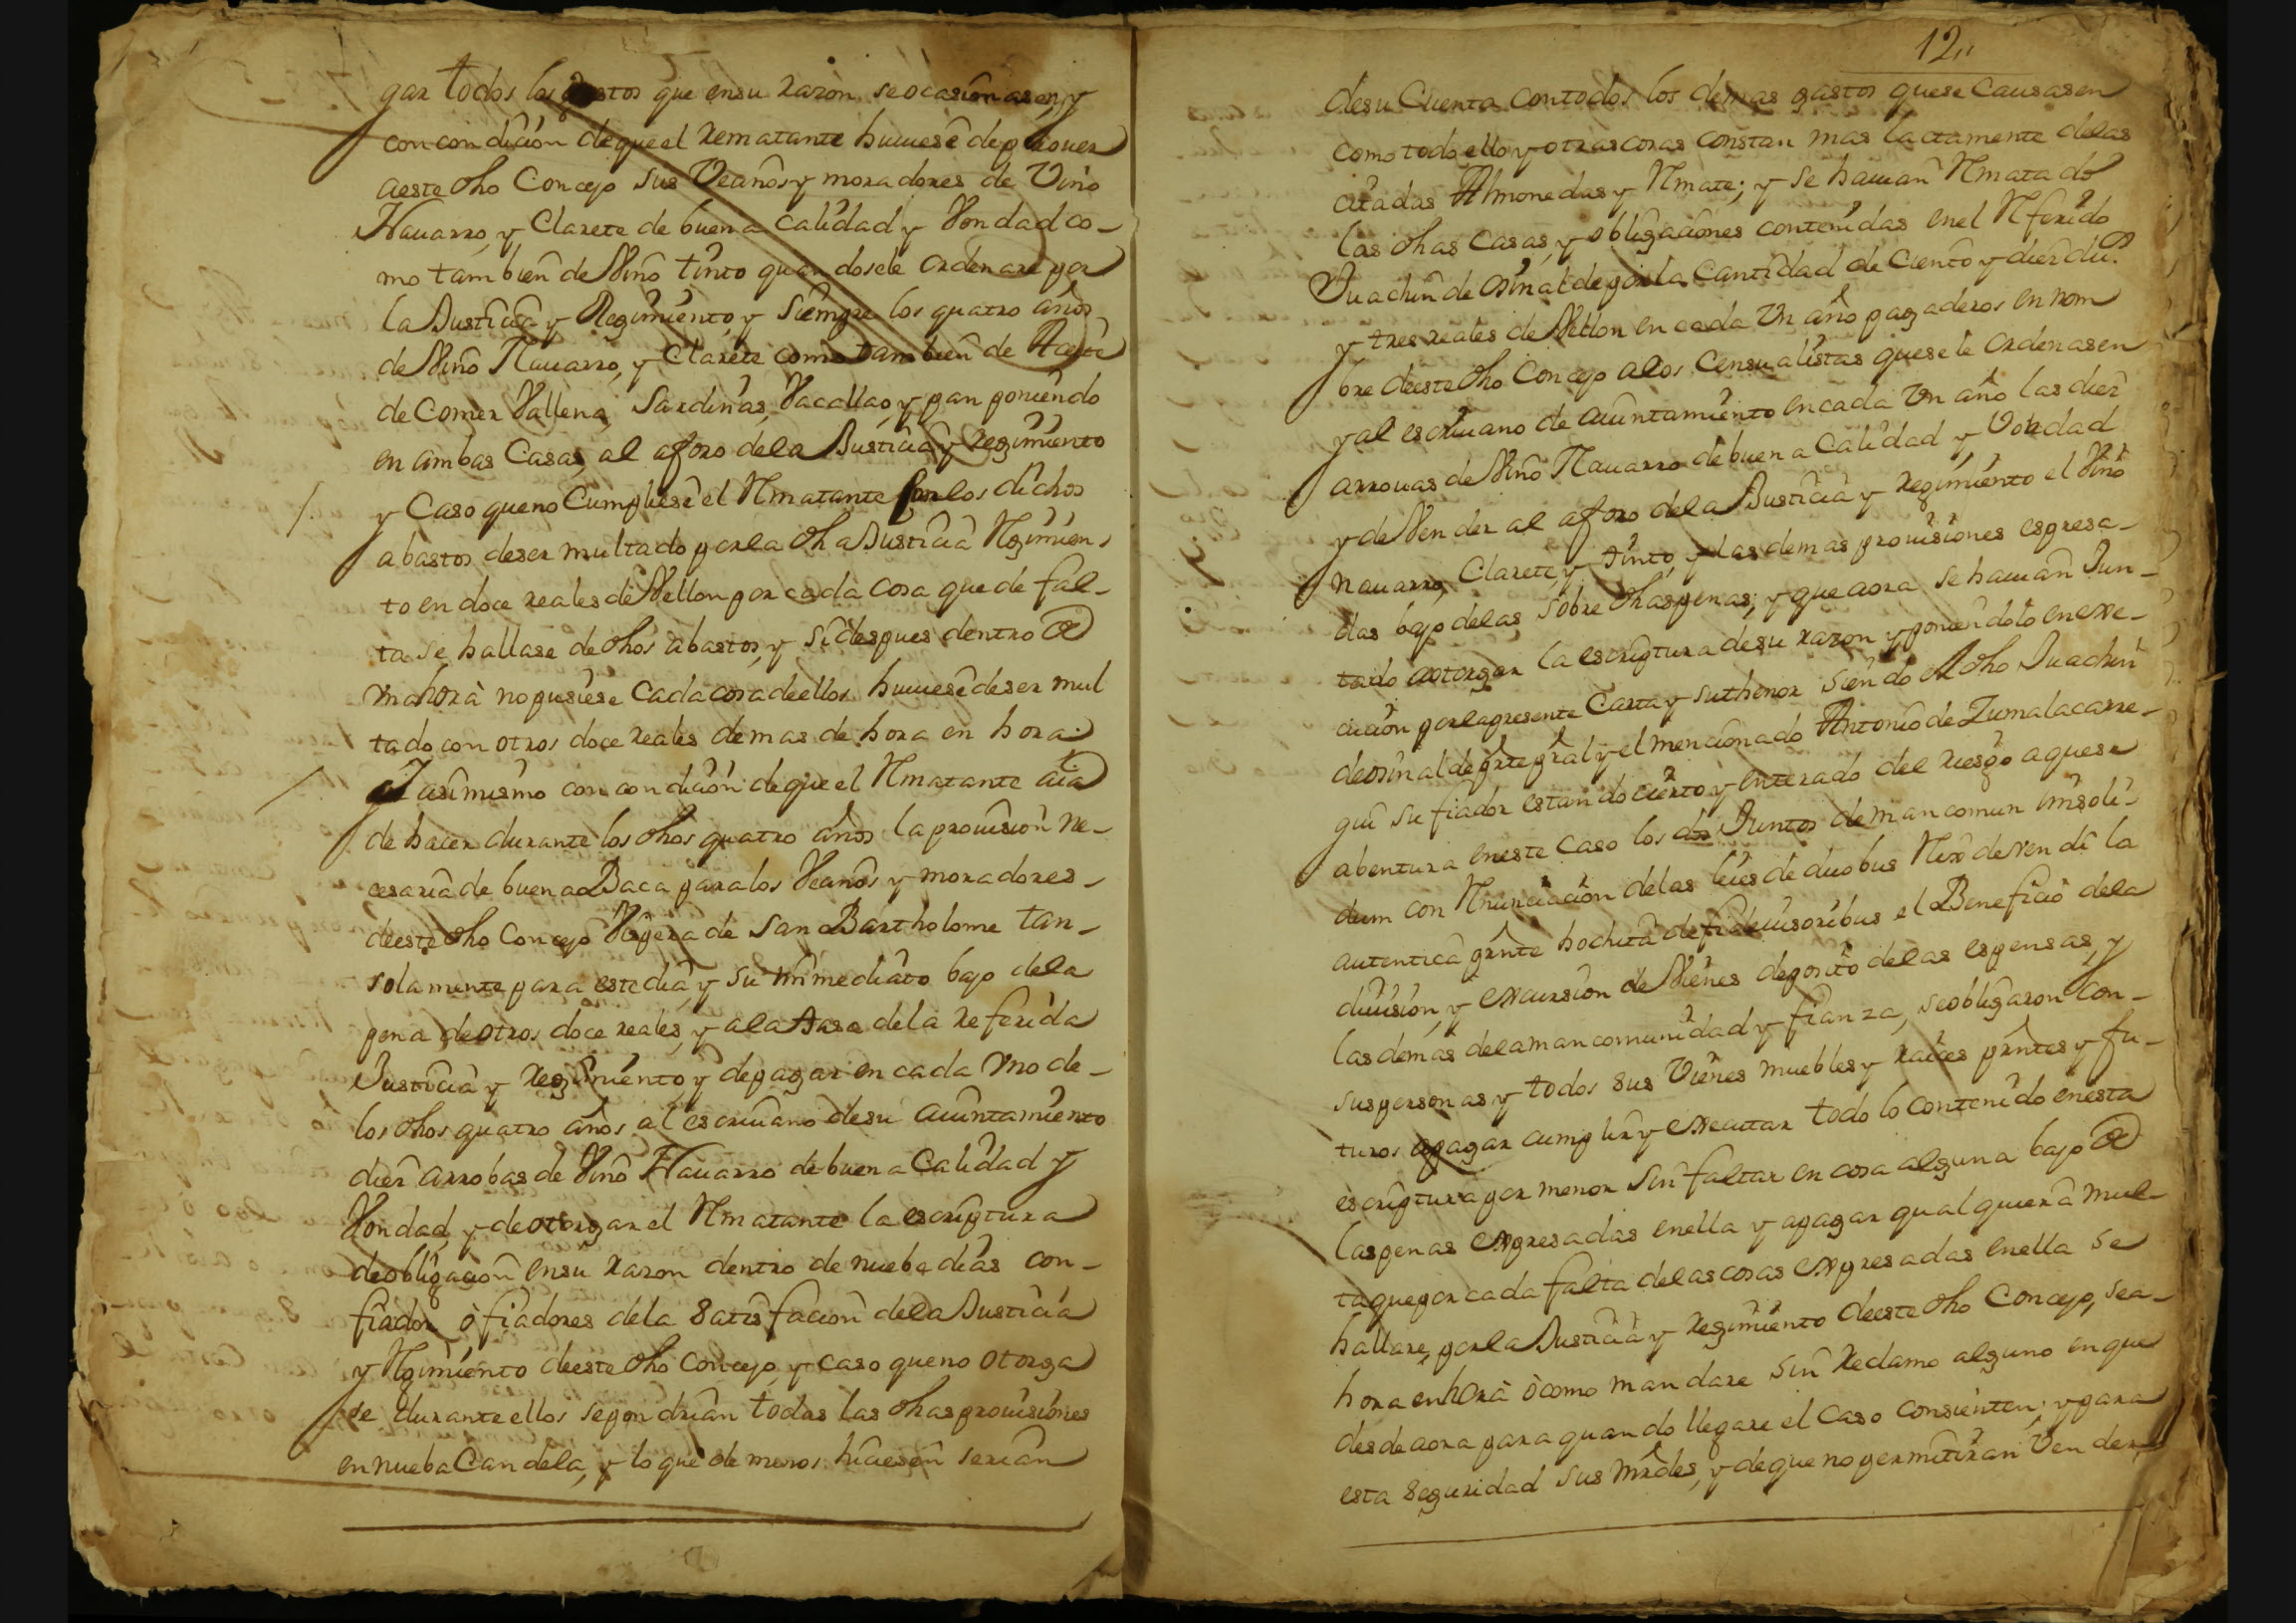 gar todos los gastos que ensu razon se ocasionasen, y
con condicion de que el rematante huuese de prouer
a este dho Concejo sus Vecinos y moradores de Vino
Nauarro, y Clarete de buena calidad y Vondad co-
mo tambien de Vino tinto quando se le ordenare por
la Justicia y Regimiento, y siempre los quatro años
de Vino Nauarro, y Clarete como tambien de Aceite
de Comer Vallena, Sardinas, Vacallao, y pan poniendo
en ambas Casas, al aforo dela Justicia y regimiento
y Caso que no Cumpliese el Rmatante con los dichos
abastos de ser multado por la dha Justicia Rgimien-
to en doce reales de Vellon por cada cosa que de fal-
ta se hallase de dhos abastos, y si despues dentro de
Vna hora no pusiese Cada cosa de ellos huuese de ser mul
tado con otros doce reales demas de hora en hora:
Y asimismo con condicion de que el Rmatante aia
de hacer durante los dhos quatro años la prouision ne-
cesaria de buena Baca para los Vecinos y moradores
de este dho Concejo Vispera de San Bartholome tan-
solamente para este dia, y su inmediato bajo dela
pena de otros doce reales, y ala tasa dela referida
Justicia y regimiento, y de pagar en cada Vno de-
los dhos quatro años al escriuano de su aiuntamiento
diez arrobas de Vino Nauarro de buena Calidad y
Vondad, y de otorgar el Rmatante la escriptura
de obligacion en su razon dentro de nuebe dias con-
fiador ò fiadores dela satisfacion dela Justicia
y Rgimiento de este dho Concejo, y caso que no otorga
se durante ellos se pondrian todas las dhas prouisiones
en nueba Candela, y lo que de menos hiciesen serian
12,,
desu Cuenta contodos los demas gastos que se Causasen
como todo ello y otras cosas constan mas lactamente delas
citadas Almonedas y Rmate; y se hauian Rmatado
las dhas Casas, y obligaciones contenidas en el Rferido
Juachin de Osinalde por la Cantidad de Ciento y diez du.s
y tres reales de Vellon en cada Vn año pagaderos en nom
bre de este dho Concejo alos Censualistas que se le ordenasen
y al escriuano de aiuntamiento en cada Vn año las diez
arrouas de Vino Nauarro de buena Calidad y Vondad
y de Vender al aforo dela Justicia y regimiento el Vino
nauarro, Clarete, y tinto, y las demas prouisiones espresa-
das bajo delas sobre dhas penas; y que aora se hauian Jun-
tado aotorgar la escriptura desu razon y poniendolo en exe-
cucion por la presente Carta y suthenor siendo el dho Juachin
de osinalde prte pral y el mencionado Antonio de Zumalacarre-
gui su fiador estando cierto y enterado del riesgo aque se
abentura eneste caso los dos Juntos de mancomun insoli-
dum con Rnunciacion delas leies de duobus Reis devendi la
autentica prnte hochita de fideiusoribus el Beneficio dela
diuision, y excursion de Vienes deposito delas espensas, y
las demas dela mancomunidad y fianza, se obligaron con-
sus personas y todos sus Vienes muebles y raices prntes y fu-
turos apagar cumplir y executar todo lo contenido en esta
escriptura por menor sin faltar en cosa alguna bajo de
las penas expresadas en ella y apagar qualquiera mul-
ta que por cada falta delas cosas expresadas en ella se
hallare, por la Justicia y regimiento de este dho Concejo, sea-
hora en hora ò como mandare sin reclamo alguno en que
desde aora para quando llegare el Caso consienten; y para
esta seguridad sus mrdes, y de que no permitiran Vender